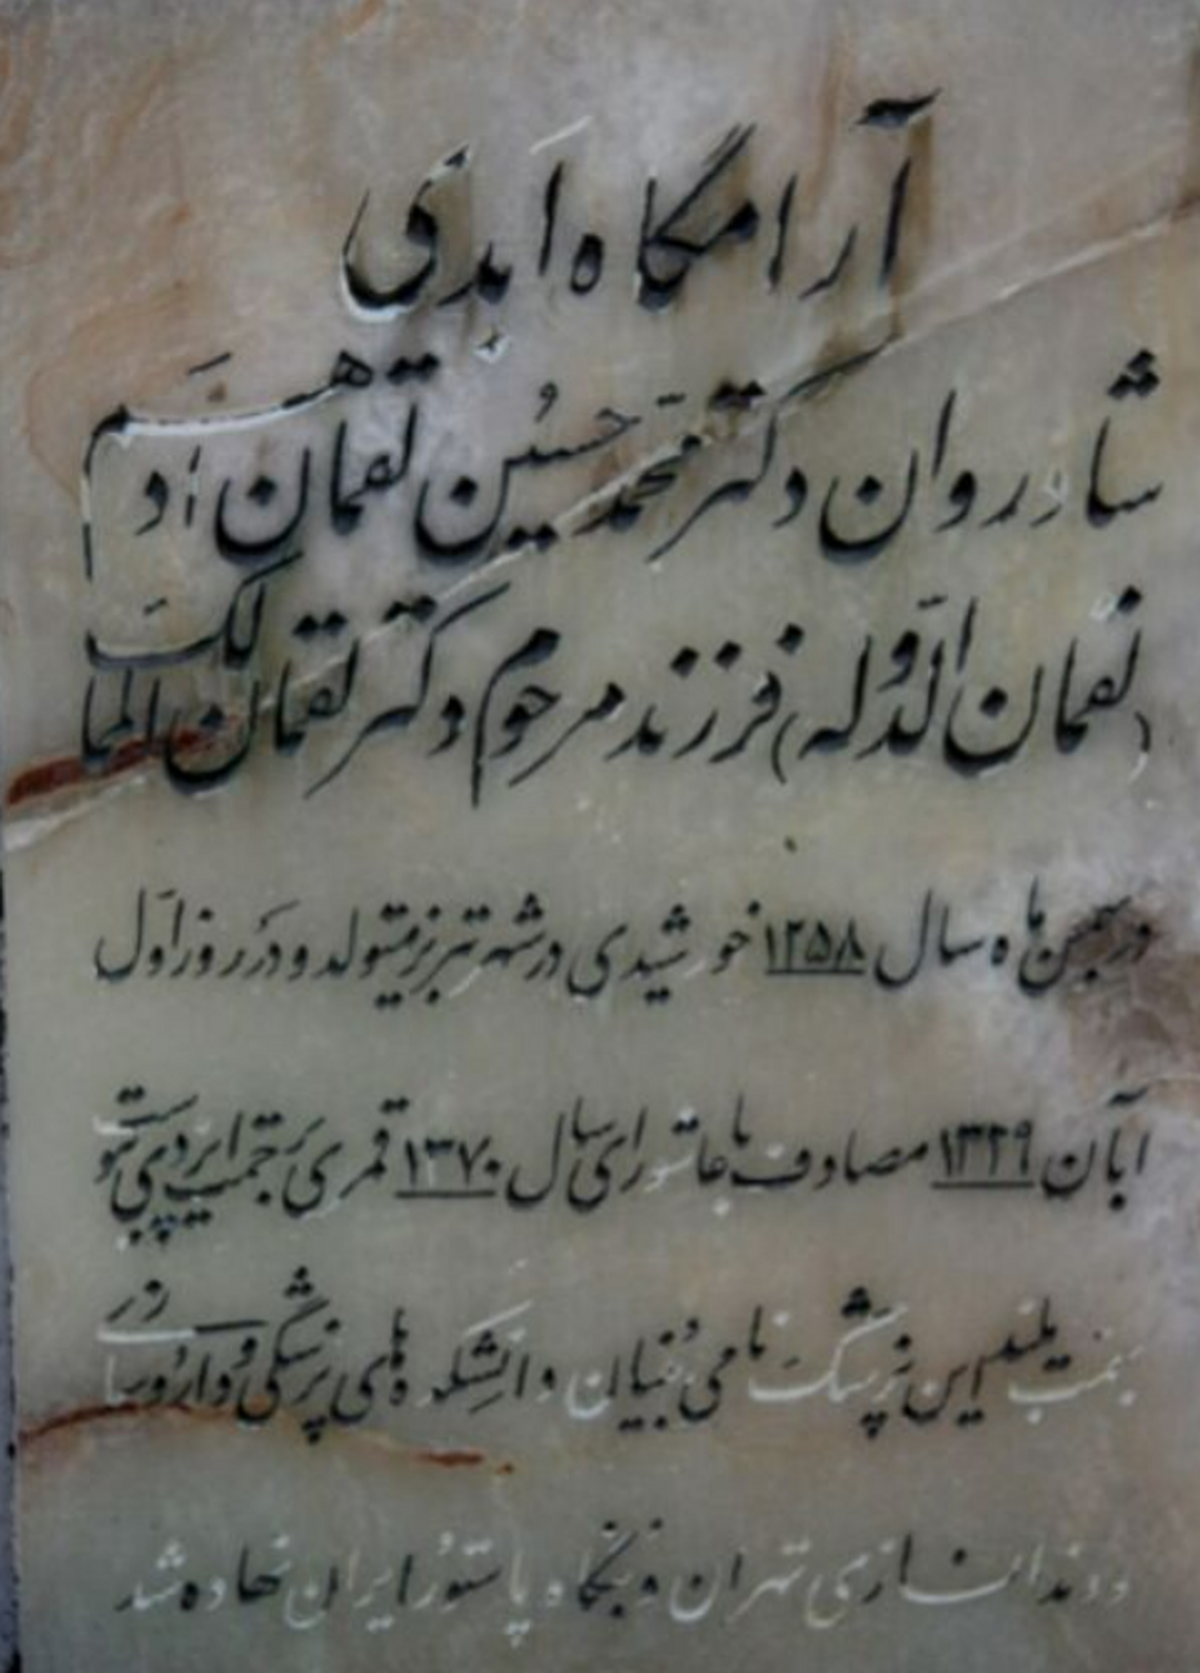 آرامگاه اَبدی
شادروان دکتر محمد حسین لقمان ادهم
(لقمان الدوله) فرزند مرحوم دکتر لقمان الممالک
در بهمن ماه سال ۱۲۵۸ خورشیدی در شهر تبریز متولد و در روز اول
آبان ۱۳۲۹ مصادف با عاشورای سال ۱۳۷۰ قمری برحمت ایزدی پیوست
بهمت بلند این پزشک نامی بنیان دانشکده های پزشکی و داروسازی
و دندانسازی تهران و بنگاه پاستور ایران نهاده شد